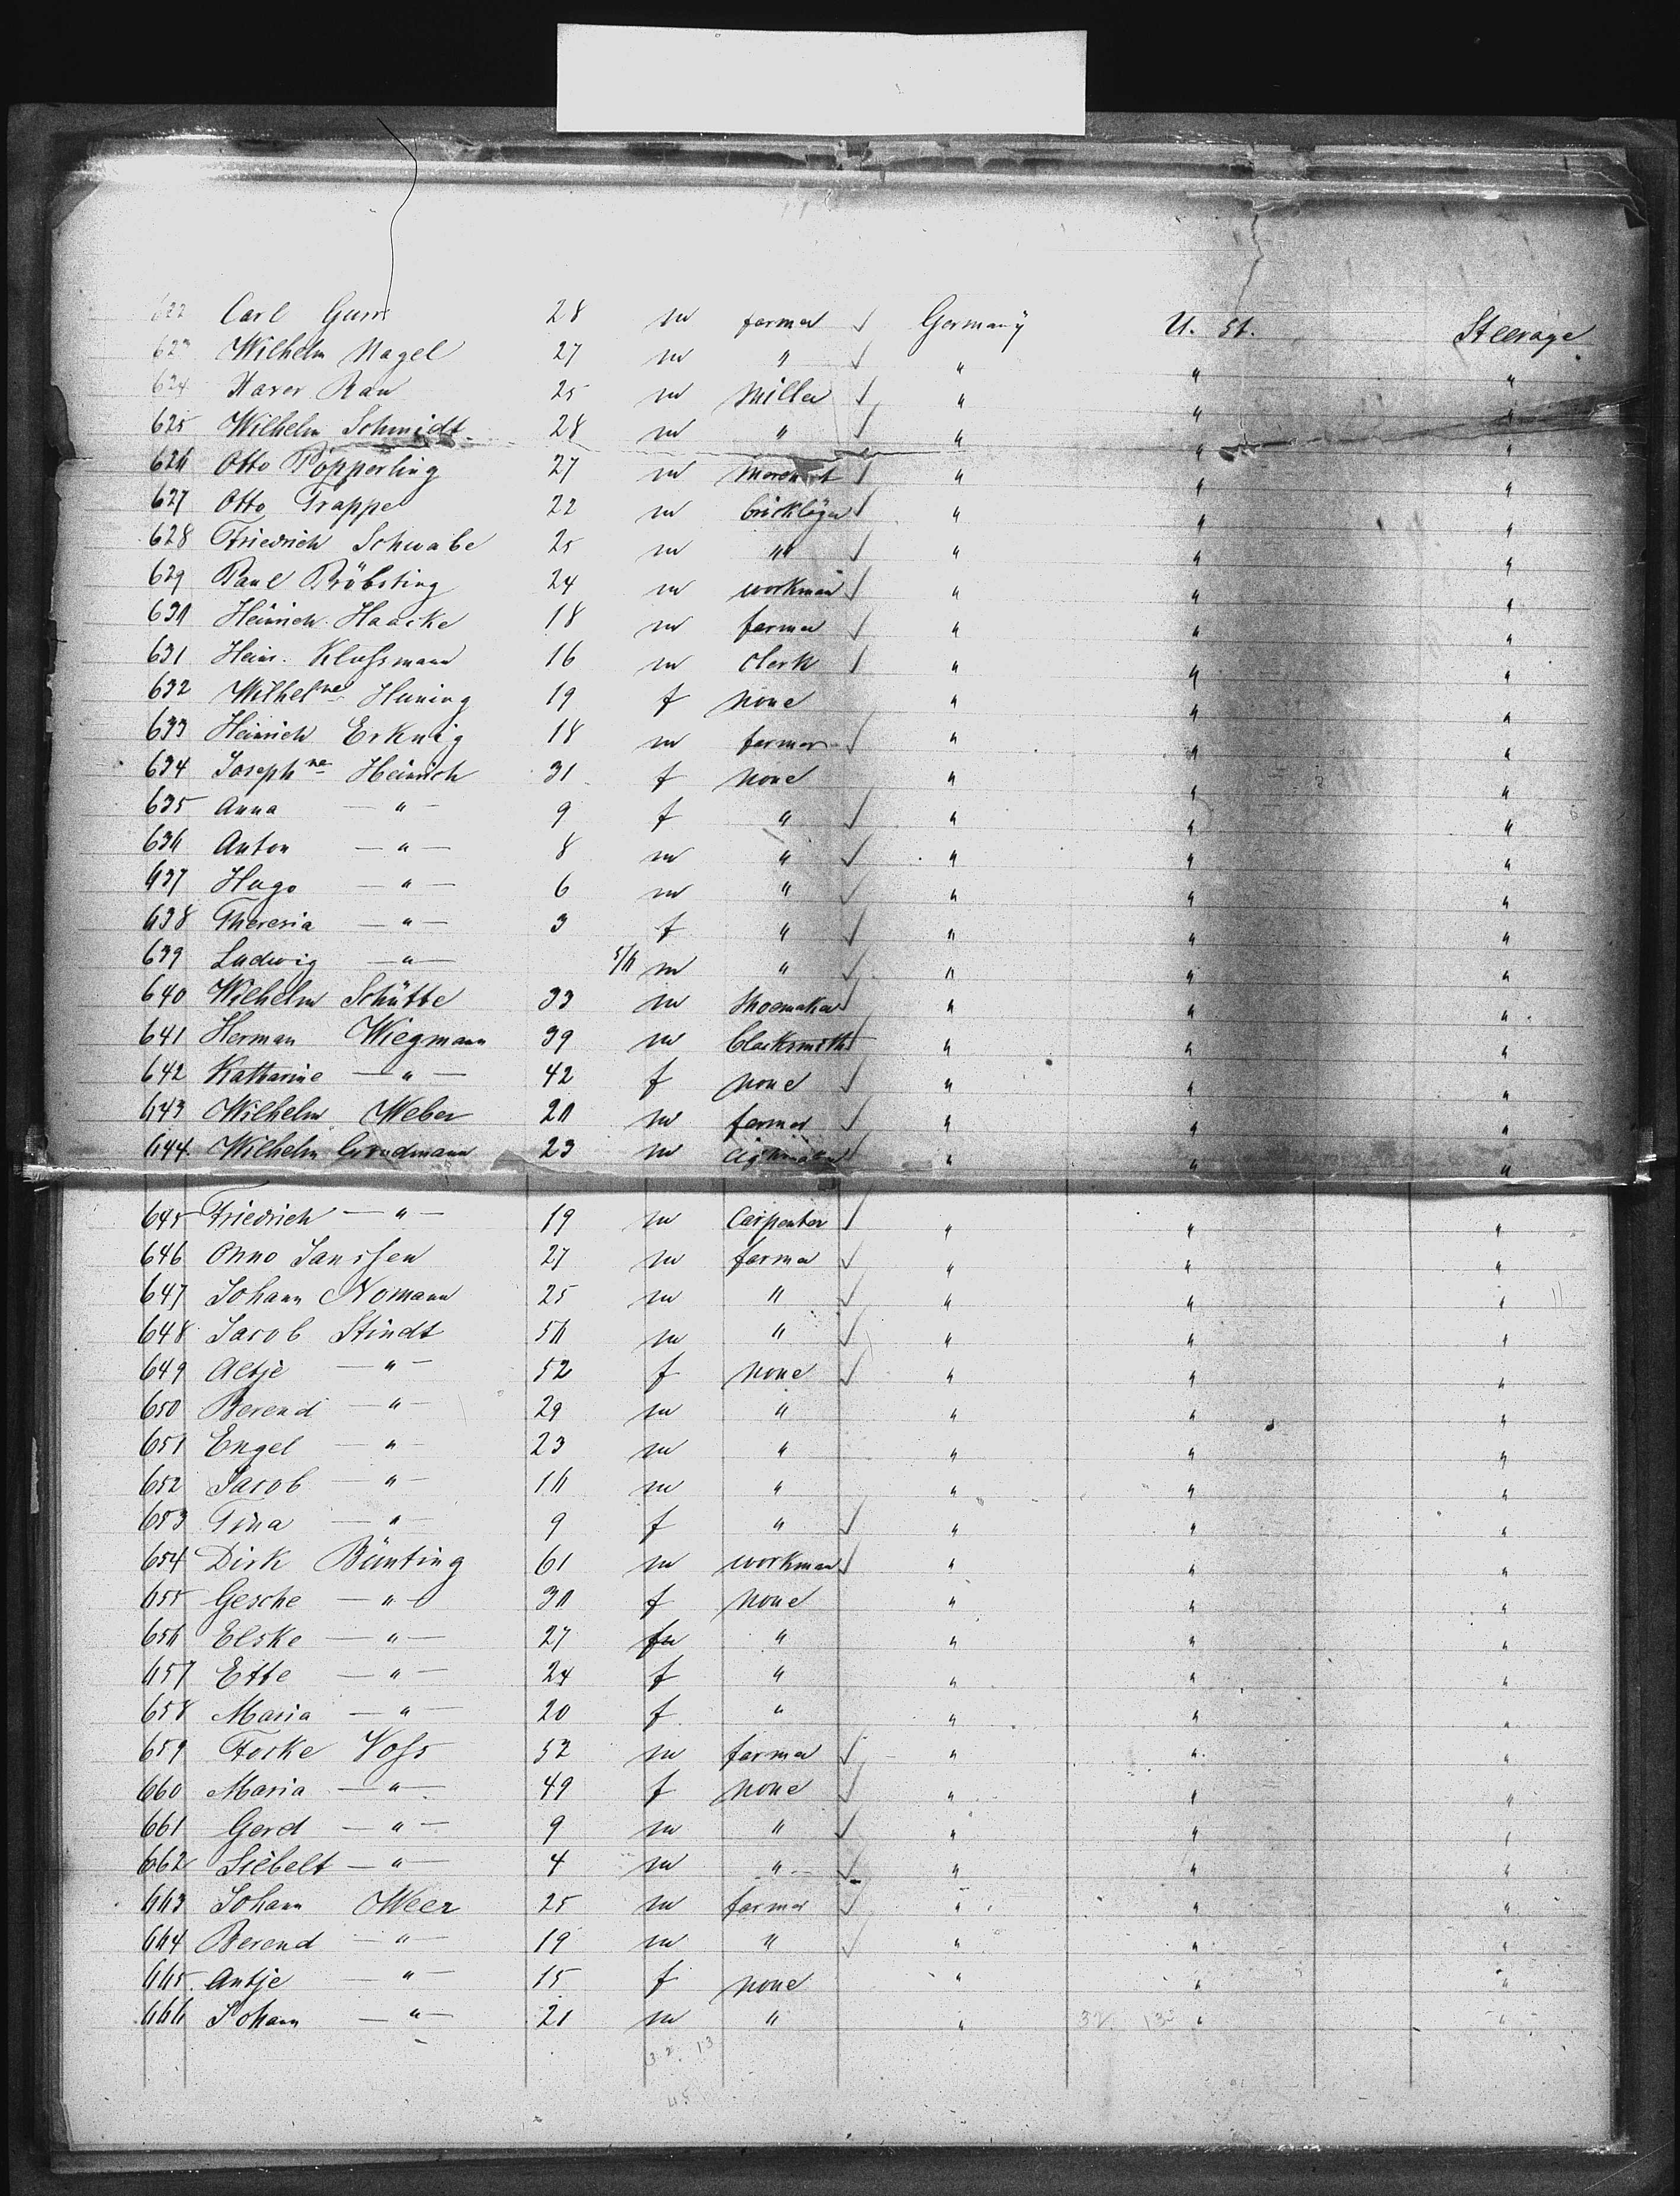 622 Carl 28 m farmer ✓ Germany U. St. Steerage
623 Wilhelm Nagel 27 m " ✓ " " "
624 Xaver Rau 25 m Miller ✓ " " "
625 Wilhelm Schmidt 28 m " ✓ " " "
626 Otto Pöpperling 27 m ✓ " " "
627 Otto Trappe 22 m bricklayer ✓ " " "
628 Friedrich Schwabe 25 m " ✓ " " "
629 Paul Pröbsting 24 m workman ✓ " " "
630 Heinrich Haacke 18 m farmer ✓ " " "
631 Heinr. Klussmann 16 m Clerk ✓ " " "
632 Wilhelne Huning 19 f none " " "
633 Heinrich 18 m farmer ✓ " " "
634 Josephne Heinrich 31 f none " " "
635 Anna — " — 9 f " ✓ " " "
636 Anton — " — 8 m " ✓ " " "
637 Hugo — " — 6 m " ✓ " " "
638 Theresia — " — 3 f " ✓ " " "
639 Ludwig — " — m " ✓ " " "
640 Wilhelm Schütte 33 m Shoemaker ✓ " " "
641 Herman Wiegmann 39 m blacksmith ✓ " " "
642 Katharine — " — 42 f none ✓ " " "
643 Wilhelm Weber 20 m farmer ✓ " " "
644 Wilhelm Grudmann 23 m ✓ " " "
645 Friedrich — " — 19 m Carpenter ✓ " " "
646 Onno Janssen 27 m farmer ✓ " " "
647 Johann Nomann 25 m " ✓ " " "
648 Jacob Stindt 56 m " ✓ " " "
649 Altje — " — 52 f none ✓ " " "
650 Berend — " — 29 m " " " "
651 Engel — " — 23 m " " " "
652 Jacob — " — 16 m " " " "
653 Tina — " — 9 f " ✓ " " "
654 Dirk Bünting 61 m workman ✓ " " "
655 Gesche — " — 30 f none " " "
656 Elske — " — 27 f " " " "
657 Ette — " — 24 f " " " "
658 Maria — " — 20 f " " " "
659 Focke Voss 52 m farmer ✓ " " "
660 Maria — " — 49 f none ✓ " " "
661 Gerd — " — 9 m " ✓ " " "
662 Siebelt — " — 4 m " ✓ " " "
663 Johann Weer 25 m farmer ✓ " " "
664 Berend — " — 19 m " ✓ " " "
665 Antje — " — 15 f none " " "
666 Johann — " — 21 m " " " "
32. 13